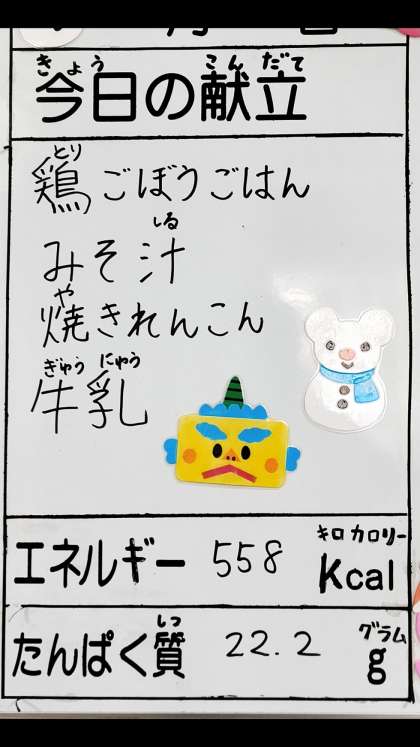 きょう こん だて
今日の献立
とり
鶏ごぼうごはん
しる
みそ汁
や
焼きれんこん
ぎゅう にゅう
牛乳
キロ カロリー
エネルギー 558 Kcal
しつ グラム
たんぱく質 22.2 g